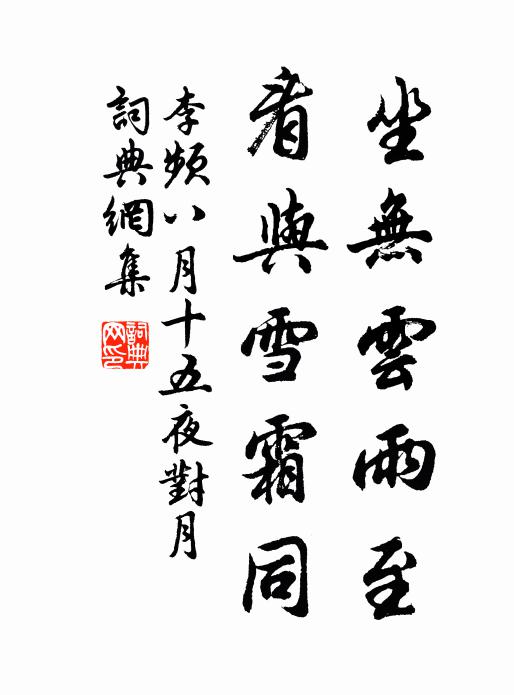 坐無雲雨至
看與雪霜同
李頻八月十五夜對月
詞典網集
詞典網印